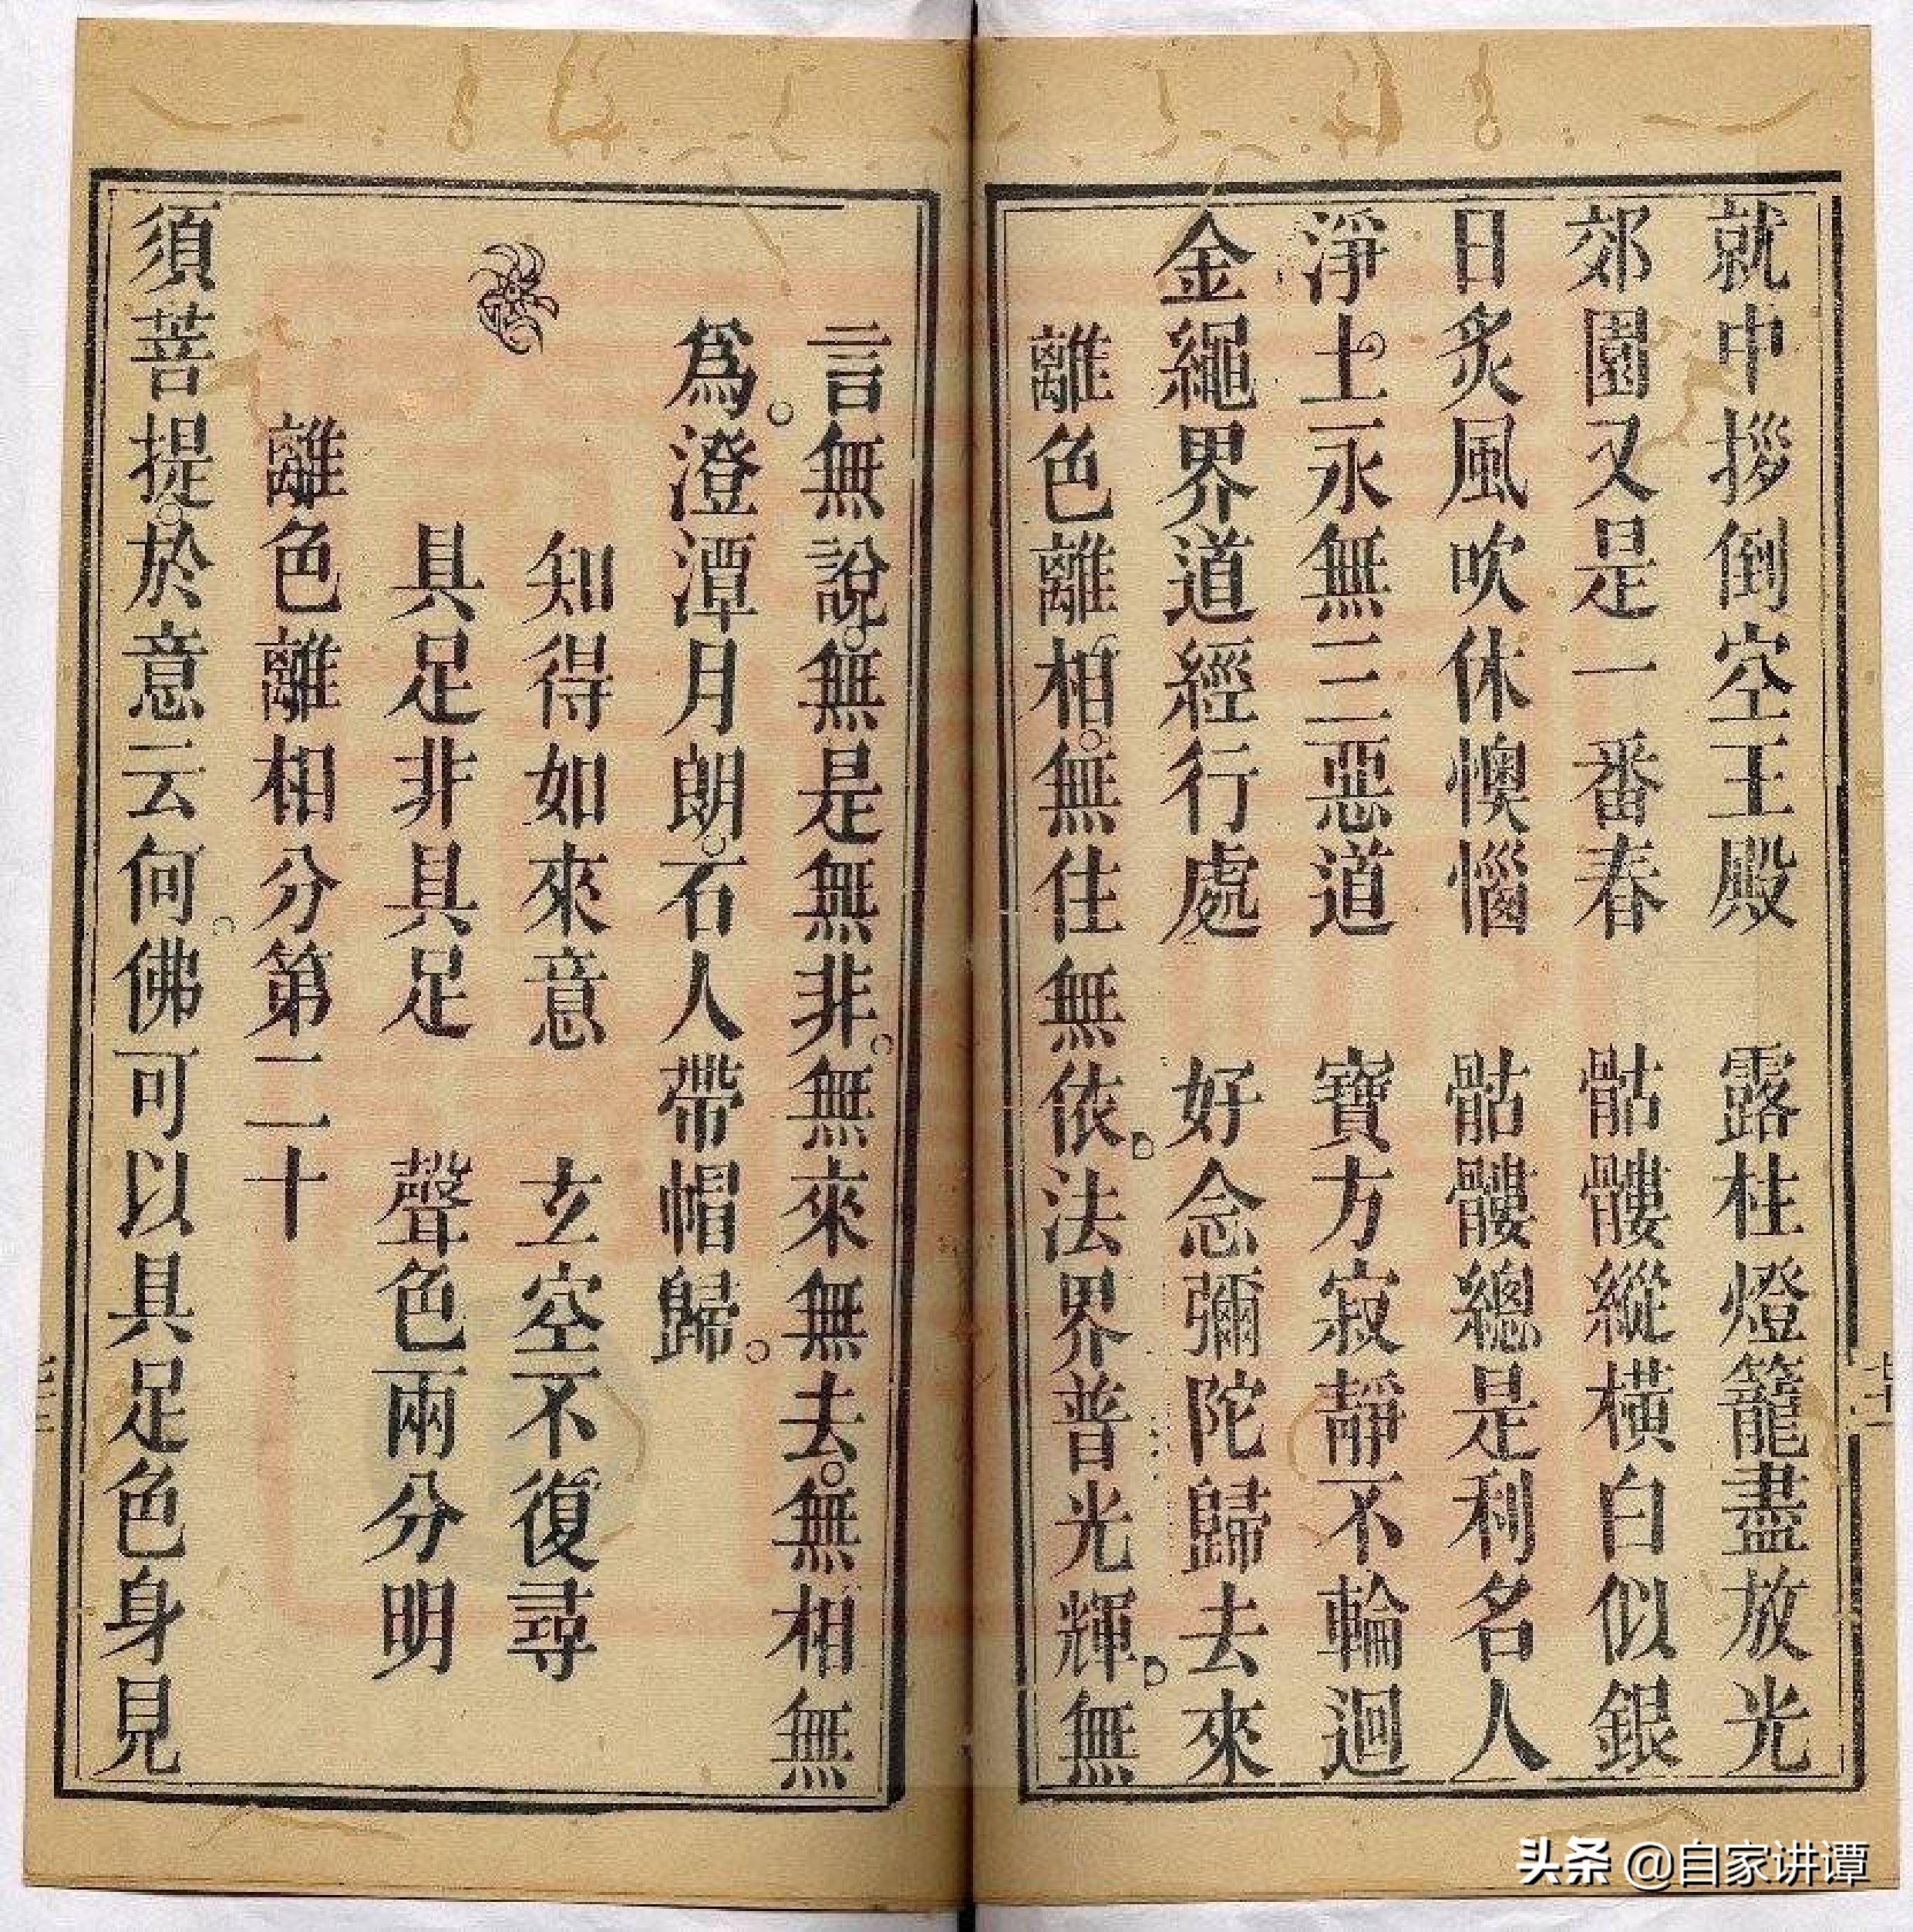 就中拶倒空王殿　露柱燈籠盡放光
郊園又是一番春　骷髏縱橫白似銀
日炙風吹休懊惱　骷髏總是利名人
淨土永無三惡道　寶方寂靜不輪迴
金繩界道經行處　好念彌陀歸去來
離色離相。無住無依。法界普光輝。無
言無說。無是無非。無來無去。無相無
爲。澄潭月朗。石人帶帽歸。
知得如來意　玄空不復尋
具足非具足　聲色兩分明
離色離相分第二十
須菩提。於意云何。佛可以具足色身見
头条 @自家讲谭